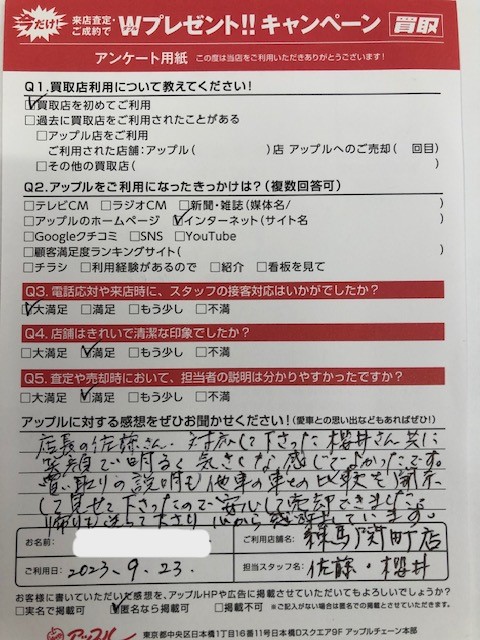 今だけ
来店査定・ご成約で Wプレゼント!! キャンペーン 買取
アンケート用紙 この度は当店をご利用いただきありがとうございます!
Q1.買取店利用について教えてください!
☑買取店を初めてご利用
□過去に買取店をご利用されたことがある
□アップル店をご利用
ご利用された店舗:アップル( )店 アップルへのご売却( 回目)
□その他の買取店( )
Q2.アップルをご利用になったきっかけは?(複数回答可)
□テレビCM □ラジオCM □新聞・雑誌(媒体名/ )
□アップルのホームページ ☑インターネット(サイト名 )
□Googleクチコミ □SNS □YouTube
□顧客満足度ランキングサイト( )
□チラシ □利用経験があるので □紹介 □看板を見て
Q3.電話応対や来店時に、スタッフの接客対応はいかがでしたか?
☑大満足 □満足 □もう少し □不満
Q4.店舗はきれいで清潔な印象でしたか?
□大満足 ☑満足 □もう少し □不満
Q5.査定や売却時において、担当者の説明は分かりやすかったですか?
□大満足 ☑満足 □もう少し □不満
アップルに対する感想をぜひお聞かせください!(愛車との思い出などもあればぜひ!)
店長の佐藤さん、対応して下さった櫻井さん共に
笑顔で明るく気さくな感じでよかったです。
買い取りの説明も他車の車との比較も開示
して見せて下さったので安心して売却できました。
帰りも送って下さり心から感謝しています。
お名前:
ご利用店舗名: 練馬戸町店
ご利用日: 2023.9.23.
担当スタッフ名: 佐藤・櫻井
お客様に書いていただいた感想を、アップルHPや広告に掲載させていただいてもよろしいでしょうか?
□実名で掲載可 ☑匿名なら掲載可 □掲載不可 ※ご記入がない場合は匿名での掲載とさせていただきます。
アップル 東京都中央区日本橋1丁目16番11号日本橋Dスクエア9F アップルチェーン本部